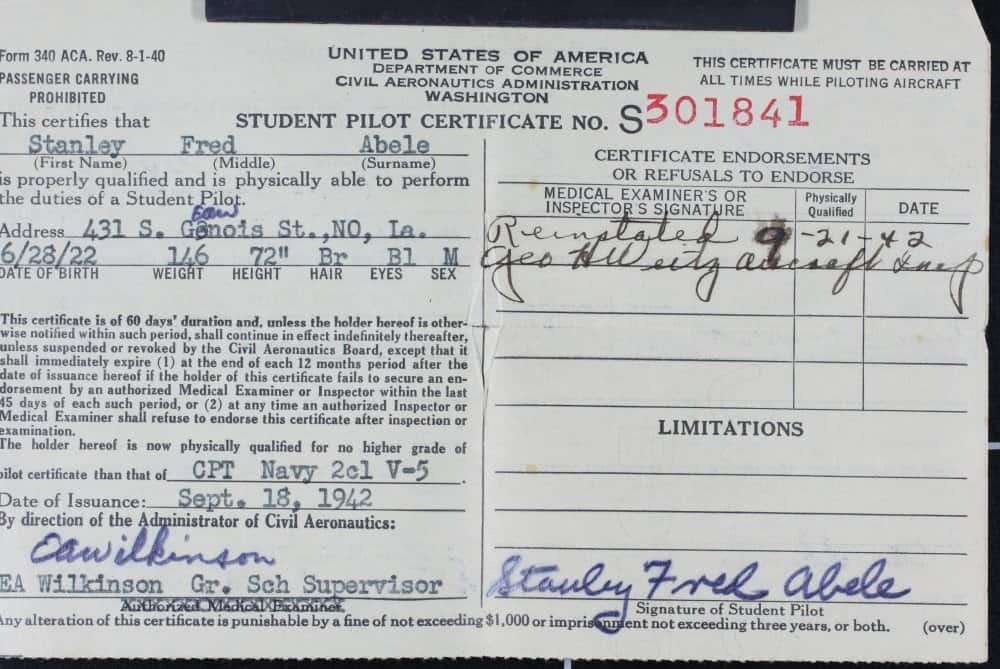 Form 340 ACA. Rev. 8-1-40
PASSENGER CARRYING
PROHIBITED
UNITED STATES OF AMERICA
DEPARTMENT OF COMMERCE
CIVIL AERONAUTICS ADMINISTRATION
WASHINGTON
THIS CERTIFICATE MUST BE CARRIED AT
ALL TIMES WHILE PILOTING AIRCRAFT
This certifies that
STUDENT PILOT CERTIFICATE NO. S301841
Stanley Fred Abele
(First Name) (Middle) (Surname)
is properly qualified and is physically able to perform
the duties of a Student Pilot.
eaw
Address 431 S. Genois St.,NO, La.
6/28/22 146 72" Br Bl M
DATE OF BIRTH WEIGHT HEIGHT HAIR EYES SEX
This certificate is of 60 days' duration and, unless the holder hereof is other-
wise notified within such period, shall continue in effect indefinitely thereafter,
unless suspended or revoked by the Civil Aeronautics Board, except that it
shall immediately expire (1) at the end of each 12 months period after the
date of issuance hereof if the holder of this certificate fails to secure an en-
dorsement by an authorized Medical Examiner or Inspector within the last
45 days of each such period, or (2) at any time an authorized Inspector or
Medical Examiner shall refuse to endorse this certificate after inspection or
examination.
The holder hereof is now physically qualified for no higher grade of
pilot certificate than that of CPT Navy 2cl V-5.
Date of Issuance: Sept. 18, 1942
By direction of the Administrator of Civil Aeronautics:
EAWilkinson
EA Wilkinson Gr. Sch Supervisor
Authorized Medical Examiner.
CERTIFICATE ENDORSEMENTS
OR REFUSALS TO ENDORSE
MEDICAL EXAMINER'S OR
INSPECTOR'S SIGNATURE
Physically
Qualified
DATE
Reinstated 9-21-42
Geo H Weitz Aircraft Insp
LIMITATIONS
Stanley Fred Abele
Signature of Student Pilot
Any alteration of this certificate is punishable by a fine of not exceeding $1,000 or imprisonment not exceeding three years, or both. (over)